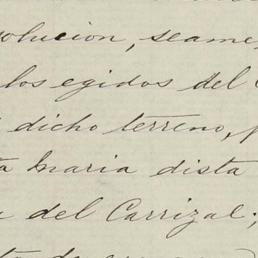 solucion, seame
los egidos del
dicho terreno,
ta Maria dista
del Carrizal;